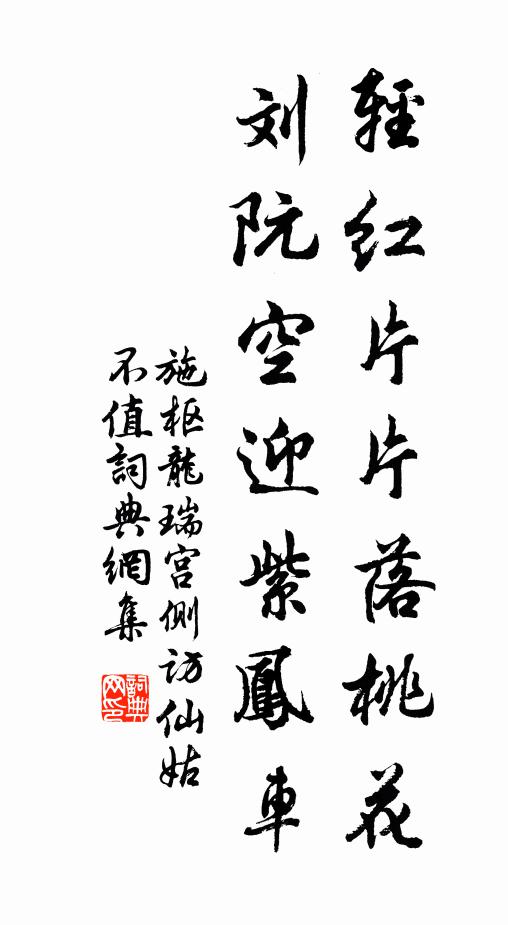 輕红片片落桃花
刘阮空迎紫鳳車
施枢龍瑞宫側访仙姑
不值詞典網集
詞典
网印